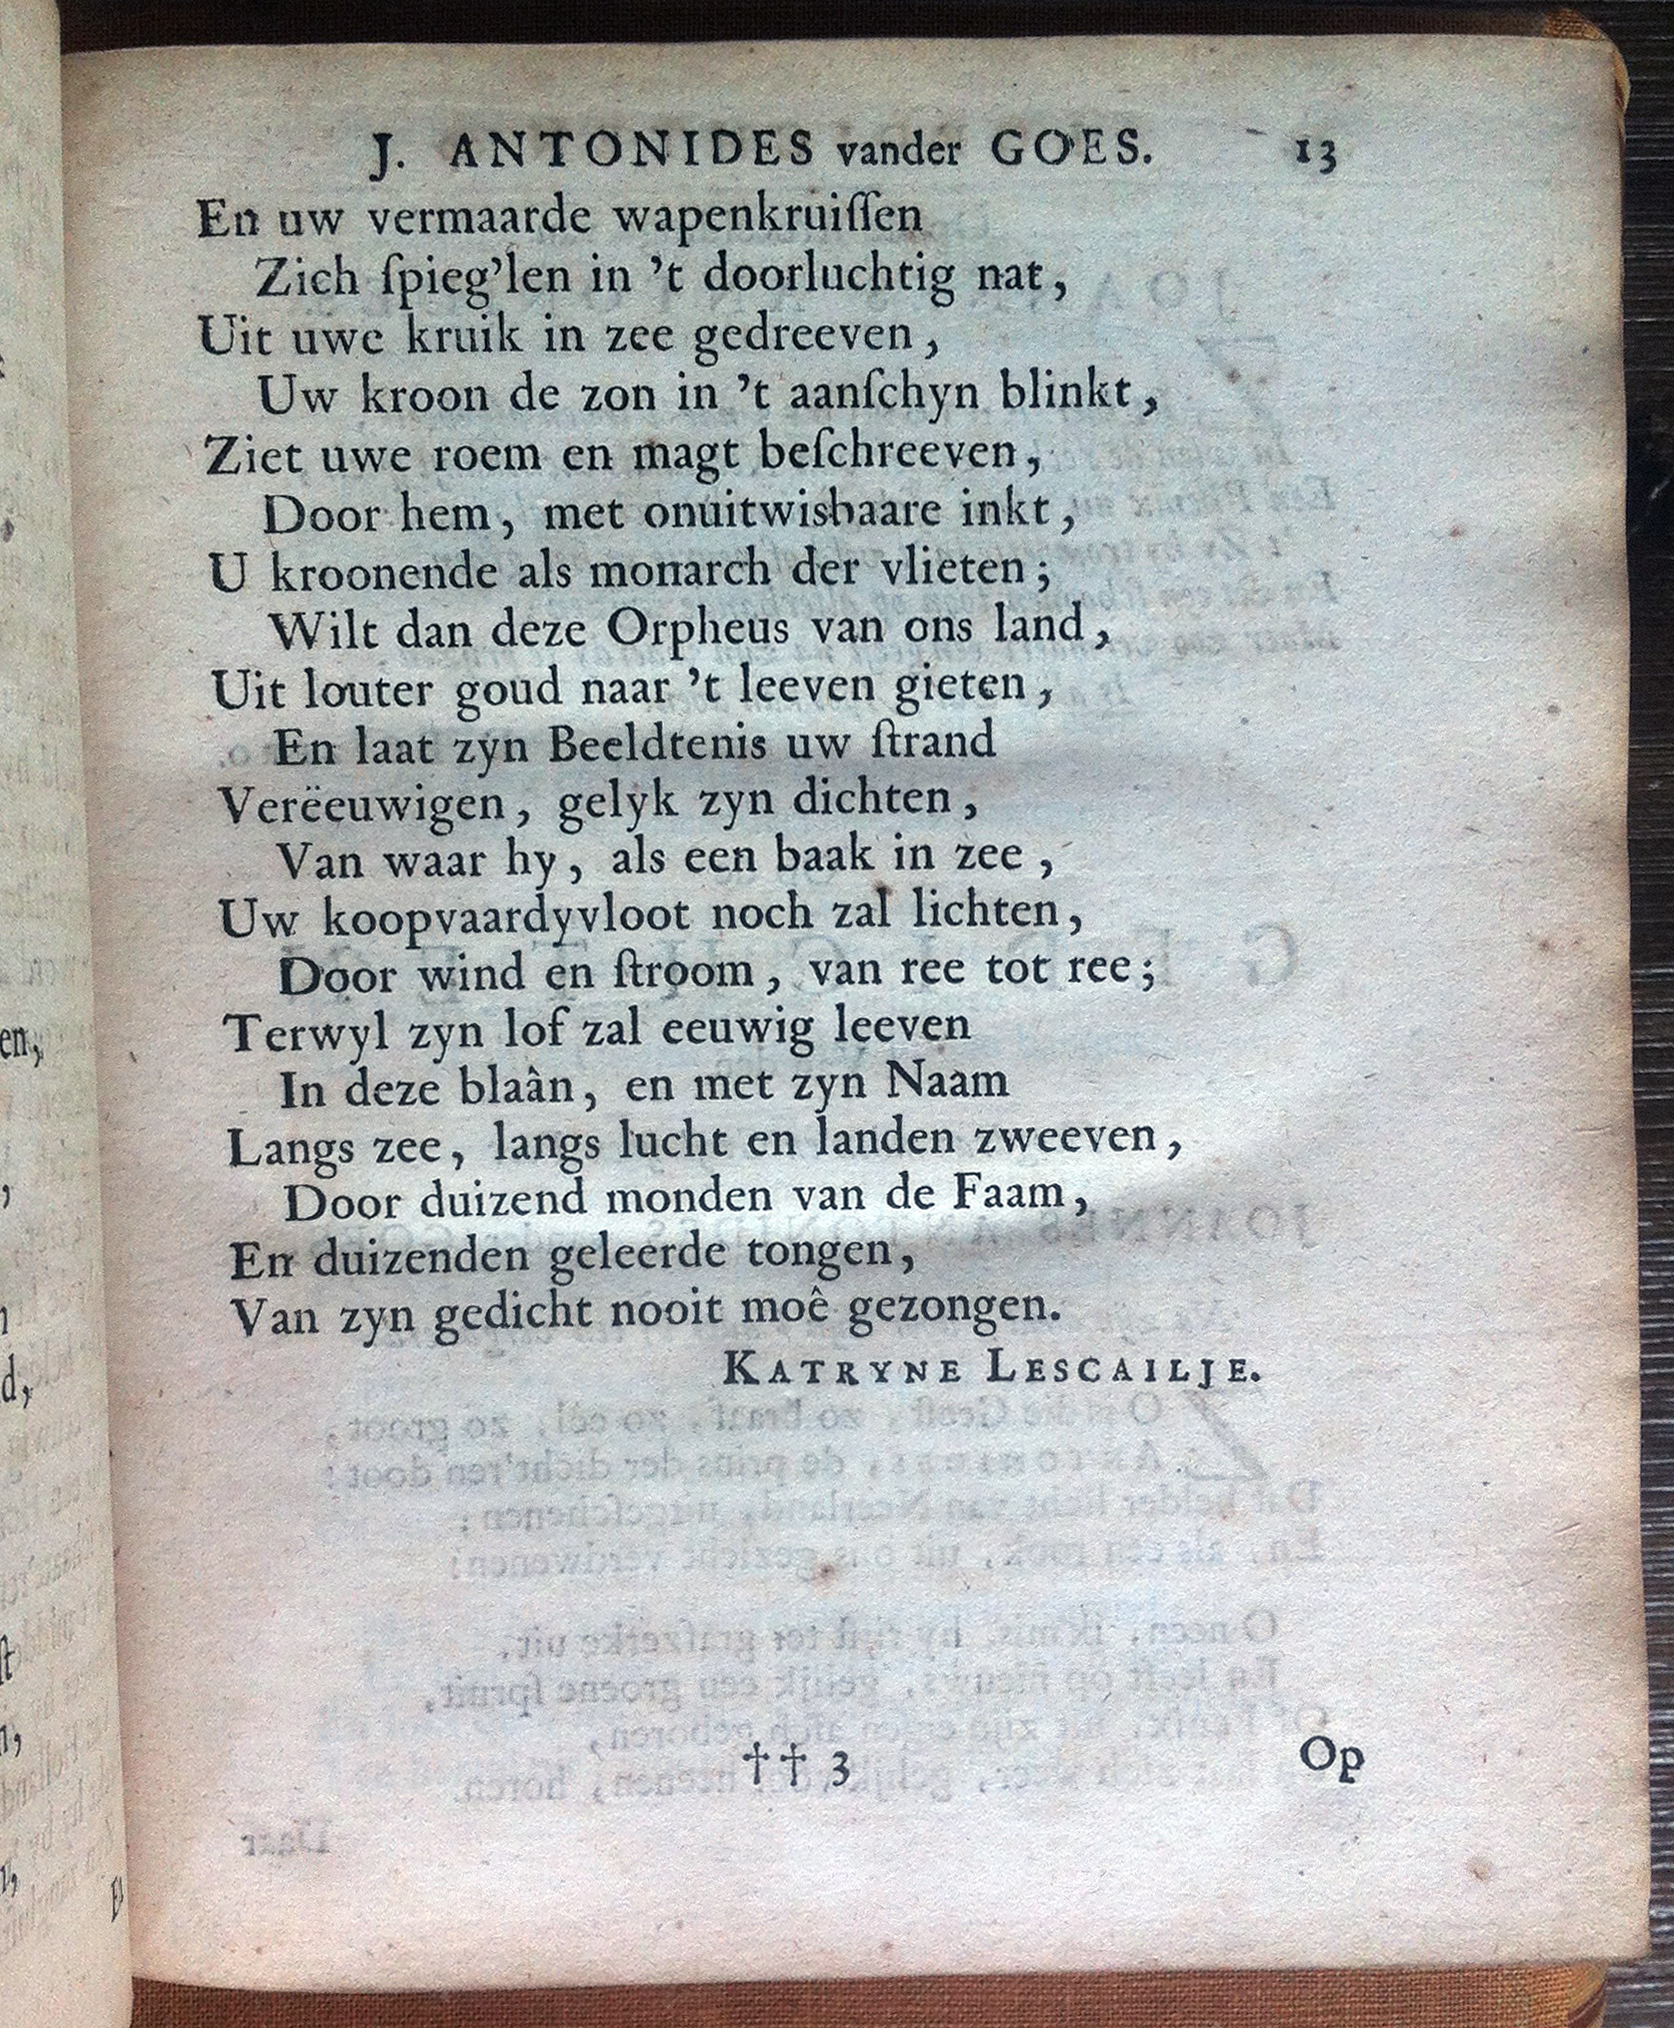 J. ANTONIDES vander GOES. 13
En uw vermaarde wapenkruiſſen
Zich ſpieg'len in 't doorluchtig nat,
Uit uwe kruik in zee gedreeven,
Uw kroon de zon in 't aanſchyn blinkt,
Ziet uwe roem en magt beſchreeven,
Door hem, met onuitwisbaare inkt,
U kroonende als monarch der vlieten;
Wilt dan deze Orpheus van ons land,
Uit louter goud naar 't leeven gieten,
En laat zyn Beeldtenis uw ſtrand
Verëeuwigen, gelyk zyn dichten,
Van waar hy, als een baak in zee,
Uw koopvaardyvloot noch zal lichten,
Door wind en ſtroom, van ree tot ree;
Terwyl zyn lof zal eeuwig leeven
In deze blaân, en met zyn Naam
Langs zee, langs lucht en landen zweeven,
Door duizend monden van de Faam,
En duizenden geleerde tongen,
Van zyn gedicht nooit moê gezongen.
KATRYNE LESCAILJE.
†† 3 Op